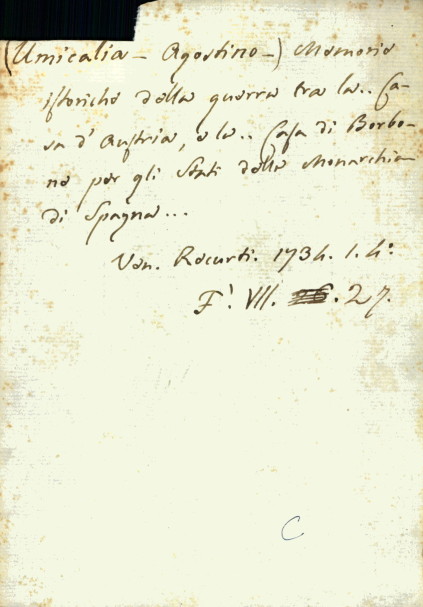 (Umicalia - Agostino -) Memorie
istoriche della guerra tra la.. Ca-
sa d'Austria, e la.. Casa di Borbo-
ne per gli Stati della Monarchia
di Spagna...
Ven. Recurti. 1734. 1. 4:
F. VII. 26. 27.
C